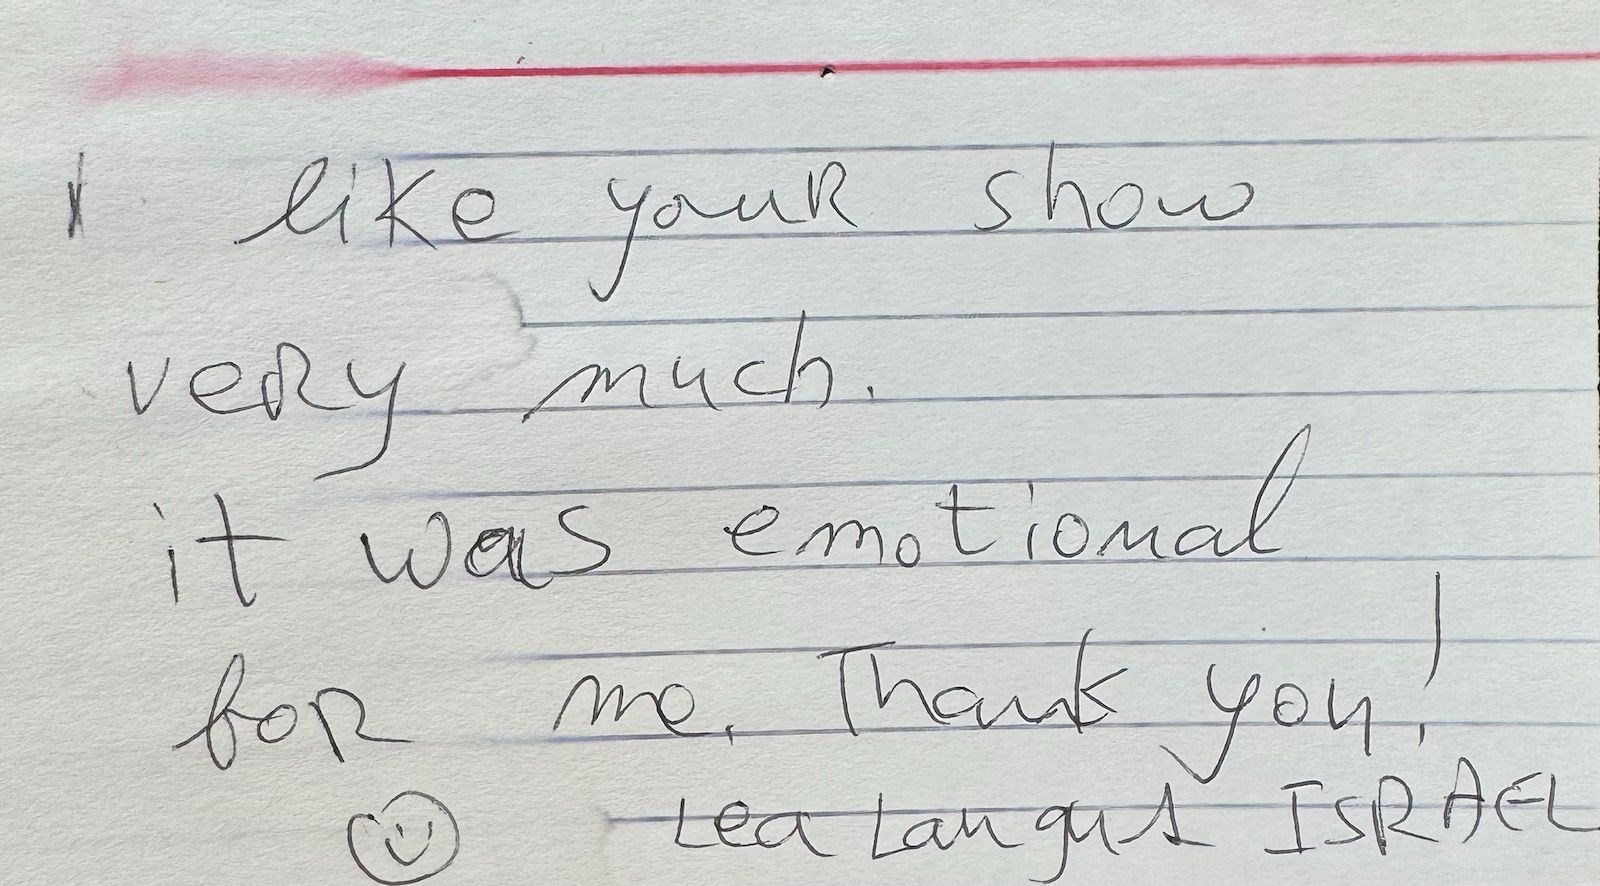 I like your show
very much.
it was emotional
for me. Thank you!
Lea Langus ISRAEL